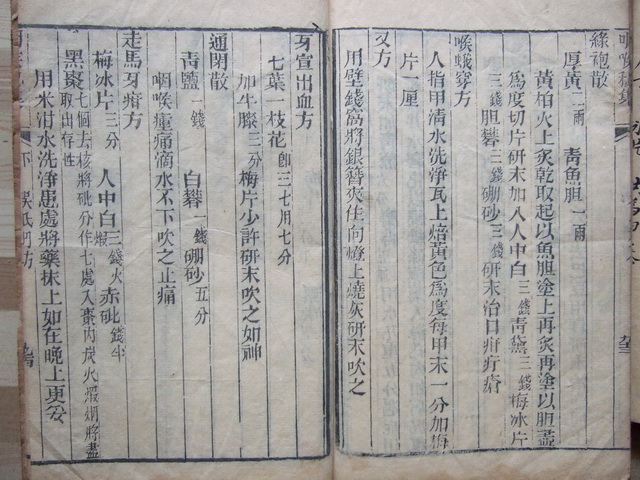 綠袍散
厚黃二兩　青魚胆一兩
黃柏火上炙乾取起以魚胆塗上再炙再塗以胆盡
為度切片研末加入人中白三錢青黛三錢梅冰片
三錢胆礬三錢硼砂三錢研末治口疳疔瘡
喉蛾穿方
人指甲清水洗淨瓦上焙黃色為度每甲末一分加梅
片一厘
又方
用壁錢窩將銀簪夾住向燈上燒灰研末吹之
牙宣出血方
七葉一枝花即三七用七分
加牛膝三分梅片少許研末吹之如神
通関散
青鹽一錢　白礬一錢硼砂五分
咽喉壅痛滴水不下吹之止痛
走馬牙疳方
梅冰片三分　人中白三錢火煅赤砒錢半
黑棗七個去核將砒分作七處入棗肉炭火煅烟將盡取出存性
用米泔水洗淨患處將藥抹上如在晚上更妥